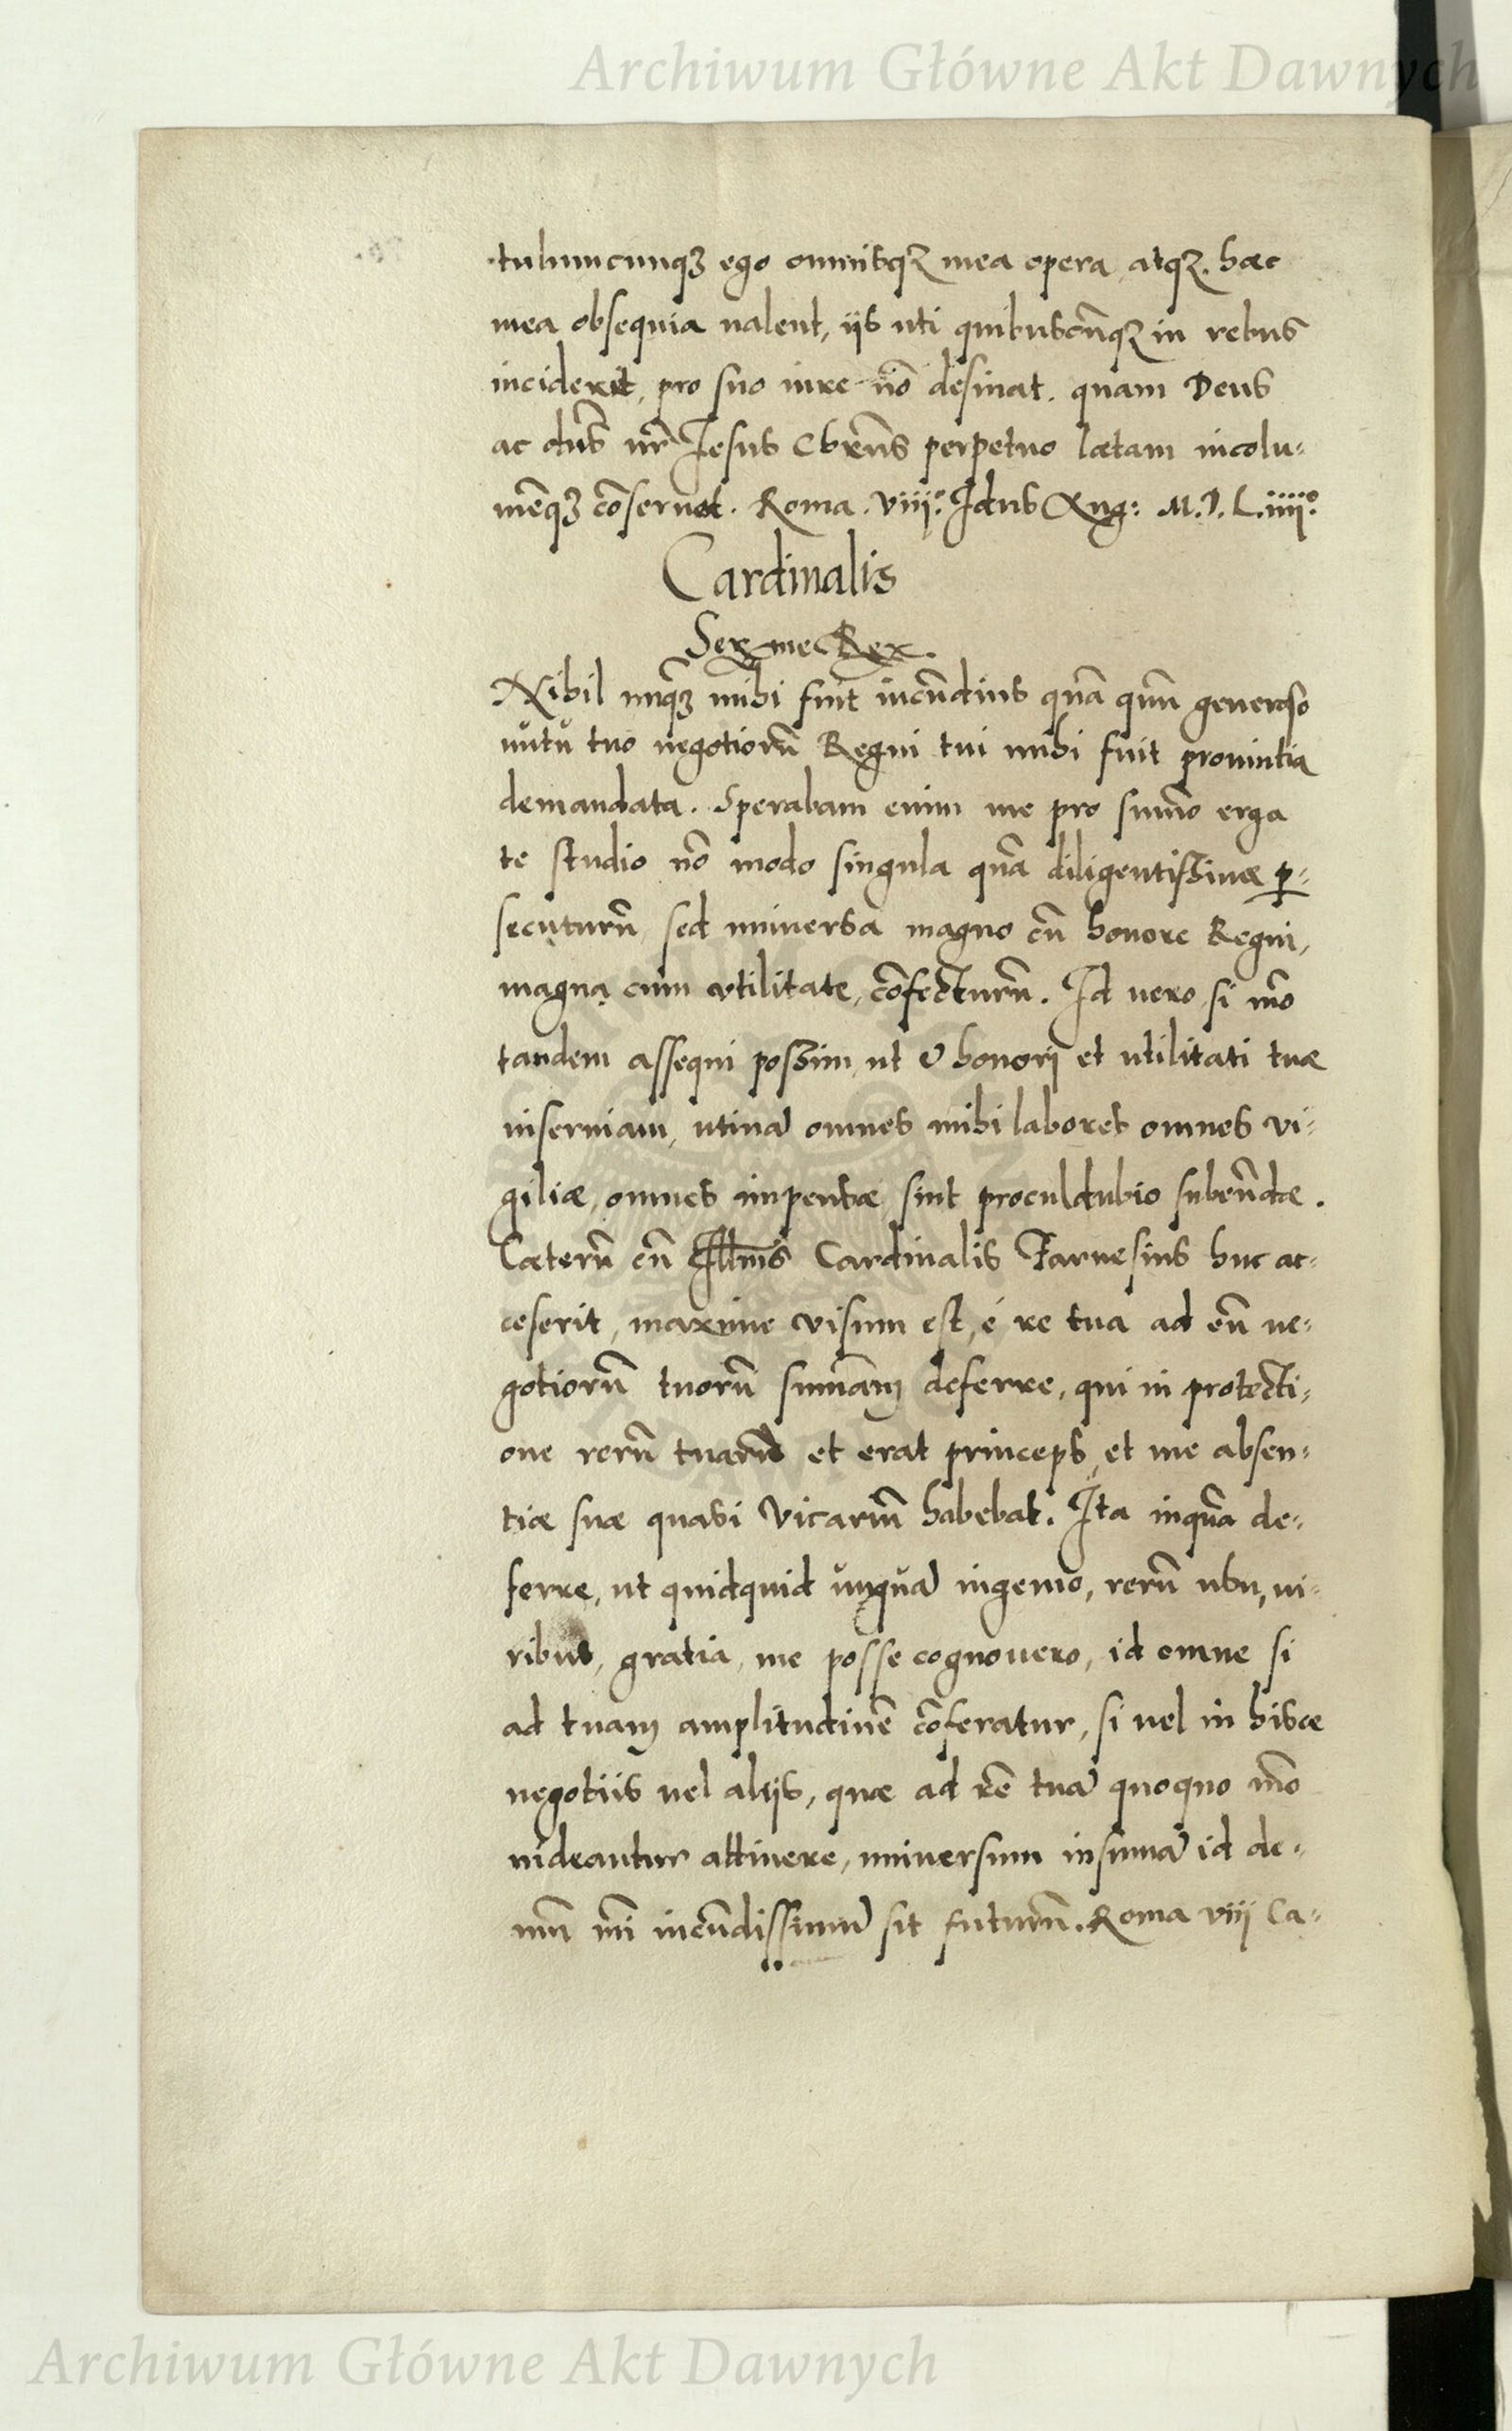 Archiwum Główne Akt Dawnych
tulumcunqꝫ ego omnisqꝫ mea opera, atqꝫ hæc
mea obsequia ualent, ijs uti quibuscūqꝫ in rebus
inciderit, pro suo iure nō desinat. quam Deus
ac dn̄s nr̄ Iesus Chrēns perpetuo lætam incolu-
mēqꝫ cōseruet. Roma. viii.º Idus Aug: M.D.L.iiii.º
Cardinalis
Serx̄me Rex.
Nihil unqꝫ mihi fuit iucūdius quā quū generoso
nutu tuo negotiorū Regni tui mihi fuit prouintia
demandata. Sperabam enim me pro sum̄o erga
te studio nō modo singula quā diligentissime p̲-
secuturū, sed uniuersa magno cū honore Regni,
magna cum vtilitate, cōfecturū. Id uero si mō
tandem assequi possim, ut & honorj et utilitati tuæ
inseruiam, utinā omnes mihi labores omnes vi-
giliæ, omnes impensæ sint proculdubio subeūdæ.
Cæterū cū Illm̄s Cardinalis Farnesius huc ac-
ceserit, maxime visum est, é re tua ad eū ne-
gotiorū tuorū sum̄am deferre, qui in protecti-
one rerū tuarū et erat princeps, et me absen-
tiæ suæ quasi vicariū habebat. Ita inquā de-
ferre, ut quidquid unquā ingenio, rerū usu, ui-
ribus, gratia, me posse cognouero, id omne si
ad tuam amplitudinē cōferatur, si uel in hisce
negotiis uel alijs, quæ ad rē tuā quoquo mō
uideantur attinere, uniuersum insumā id de-
mū mī iucūdissimū sit futurū. Roma viij Ca-
Archiwum Główne Akt Dawnych